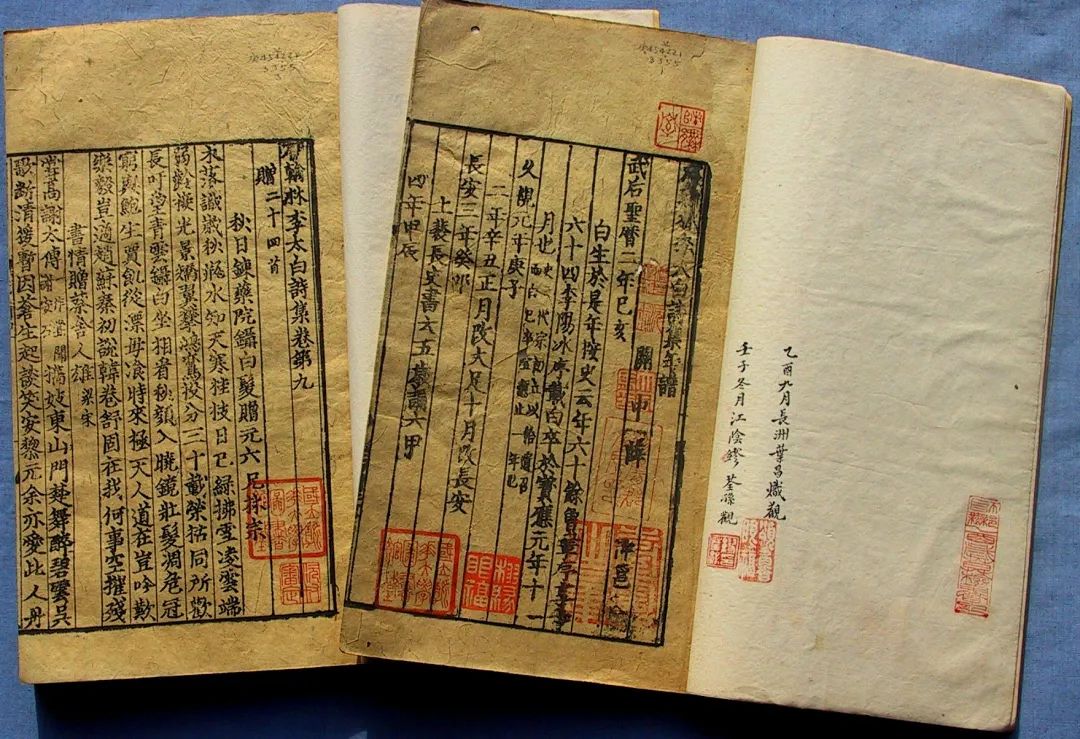 乙酉九月長洲葉昌熾觀
壬子冬月江陰繆荃孫觀
李太白詩集年譜
關中薛
武后聖曆二年己亥
白生於是年按史云年六十餘曾鞏序享年
六十四李陽冰序載白卒於寶應元年十一
月也史云代宗初立以拾遺召
而白已卒寶應止一年已
久視元年庚子
二年辛丑正月改大足十月改長安
長安三年癸卯
上裴長史書云五歲誦六甲
四年甲辰
唐翰林李太白詩集卷第九
贈二十四首
秋日鍊藥院鑷白髮贈元六兄林宗
木落識歲秋瓶水知天寒桂枝日已綠拂雪凌雲端
弱齡接光景矯翼攀鴻鸞投分三十載榮枯同所歡
長吁望青雲鑷白坐相看秋顏入曉鏡壯髮凋危冠
窮與鮑生賈飢從漂母飡時來極天人道在豈吟歎
樂毅豈適趙蘇秦初說韓卷舒固在我何事空摧殘
書情贈蔡舍人雄梁宋
嘗高謝太傅謝安石攜妓東山門楚舞醉碧雲吳
歌斷清猨暫因蒼生起談笑安黎元余亦愛此人丹